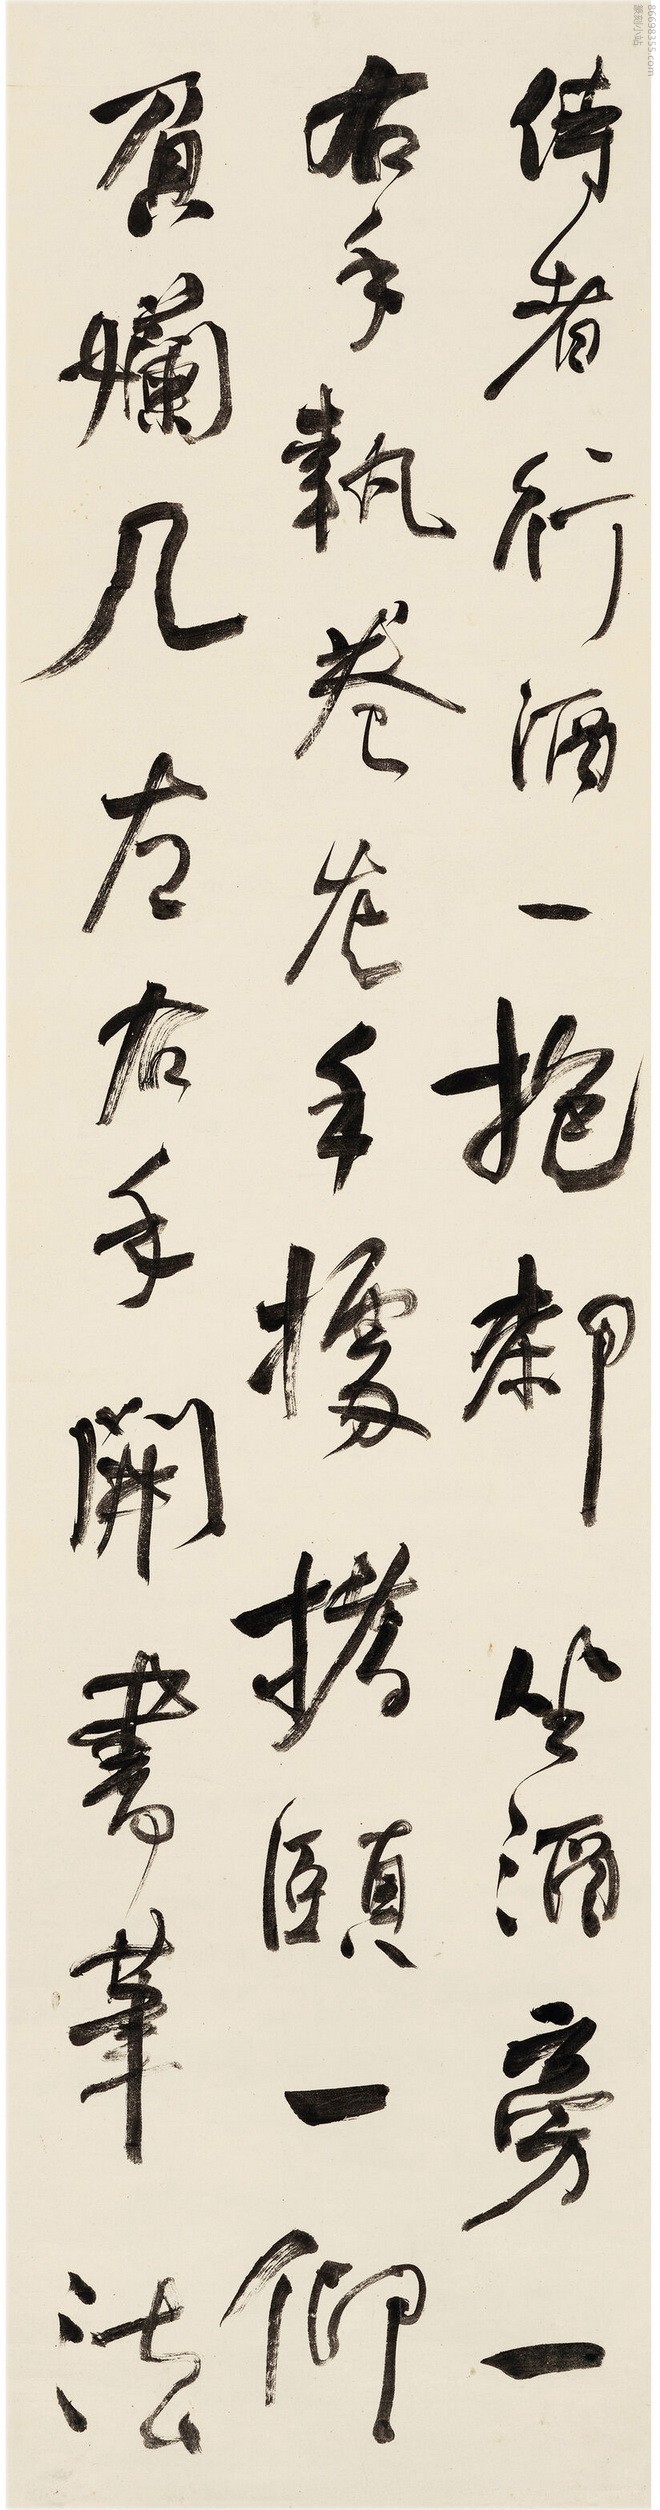 侍者行酒一抱膝坐酒旁一
右手執卷左手據搘頤一仰
首爛几左右手開書葉法
86698355.com
篆刻小站